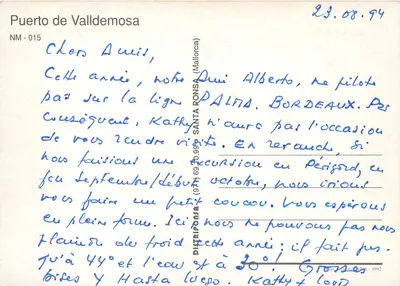 Puerto de Valldemosa
NM - 015
23.08.94
Chers Amis,
Cette année, notre Ami Alberto, ne pilote
pas sur la ligne PALMA. BORDEAUX. Par
conséquent, Kathy n'aura pas l'occasion
de vous rendre visite. En revanche, si
nous faisions une excursion en Périgord, en
fin septembre/début octobre, nous irions
vous faire un petit coucou. Vous espérons
en pleine forme. Ici, nous ne pouvons pas nous
plaindre du froid cette année: il fait jus-
qu'à 44° et l'eau est à 30°! Grosses
bises y Hasta luego. Kathy +
SANTA PONSA (Mallorca)